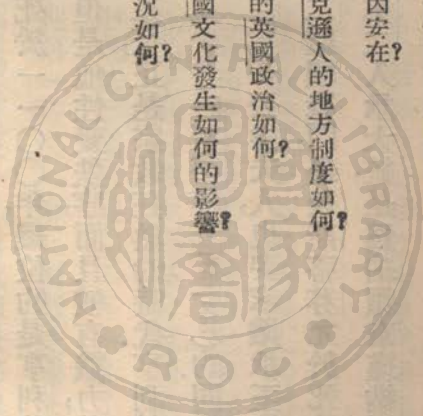 因安在？
克遜人的地方制度如何？
的英國政治如何？
國文化發生如何的影響？
况如何？
NATIONAL CENTRAL LIBRARY
R.O.C
國家
圖書館